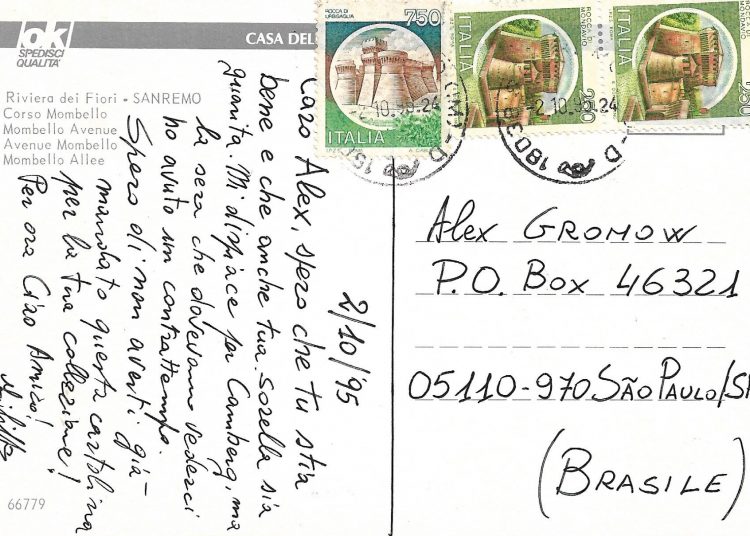 ok
SPEDISCI
QUALITA'
CASA DEL
Riviera dei Fiori - SANREMO
Corso Mombello
Mombello Avenue
Avenue Mombello
Mombello Allee
2/10/95
Caro Alex, spero che tu stia
bene e che anche tua sorella sia
guarita. Mi dispiace per Camberg, ma
la sera che dovevamo vederci
ho avuto un contrattempo.
Spero di non averti già
mandato questa cartolina
per la tua collezione!
Per ora Ciao Amico!
66779
ROCCA DI
URBISAGLIA
750
ITALIA
ROCCA DI
MONDAVIO
250
ITALIA
ROCCA DI
MONDAVIO
250
ITALIA
Alex GROMOW
P.O. Box 46321
05110-970 SÃO PAULO/SP
(BRASILE)